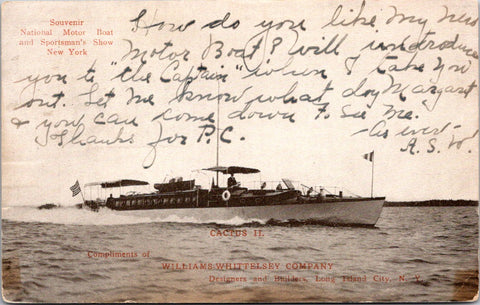 Souvenir
National Motor Boat
and Sportsman's Show
New York
How do you like My New
Motor Boat? Will introduce
you to "the Captain" when I take you
out. Let me know what day Margaret
& you can come down & see me.
Thanks for P.C.
As ever -
A.S.W.
CACTUS II.
Compliments of
WILLIAMS-WHITTELSEY COMPANY
Designers and Builders, Long Island City, N. Y.